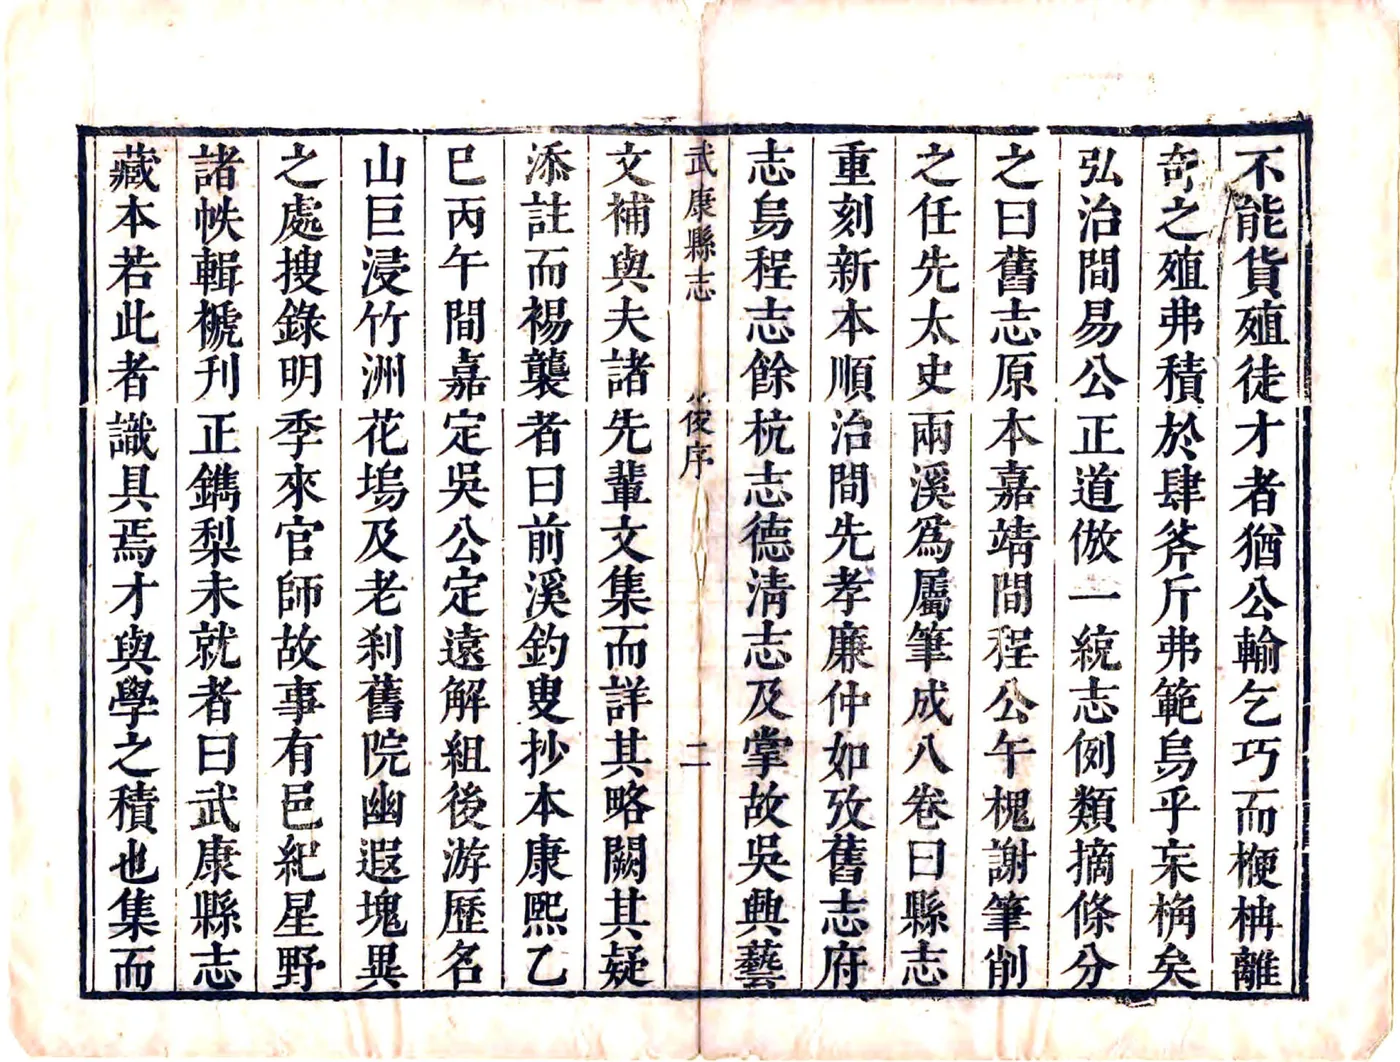 不能貨殖徒才者猶公輸乞巧而楩柟離
奇之殖弗積於肆斧斤弗範烏乎宋桷矣
弘治間易公正道倣一統志例類摘條分
之曰舊志原本嘉靖間程公午槐謝筆削
之任先太史兩溪為屬筆成八卷曰縣志
重刻新本順治間先孝廉仲如攷舊志府
志烏程志餘杭志德清志及掌故吳興藝
武康縣志
後序
二
文補與夫諸先輩文集而詳其略闕其疑
添註而裼襲者曰前溪釣叟抄本康熙乙
巳丙午間嘉定吳公定遠解組後游歷名
山巨浸竹洲花塢及老剎舊院幽遐塊異
之處搜錄明季來官師故事有邑紀星野
諸帙輯樕刊正鐫梨未就者曰武康縣志
藏本若此者識具焉才與學之積也集而